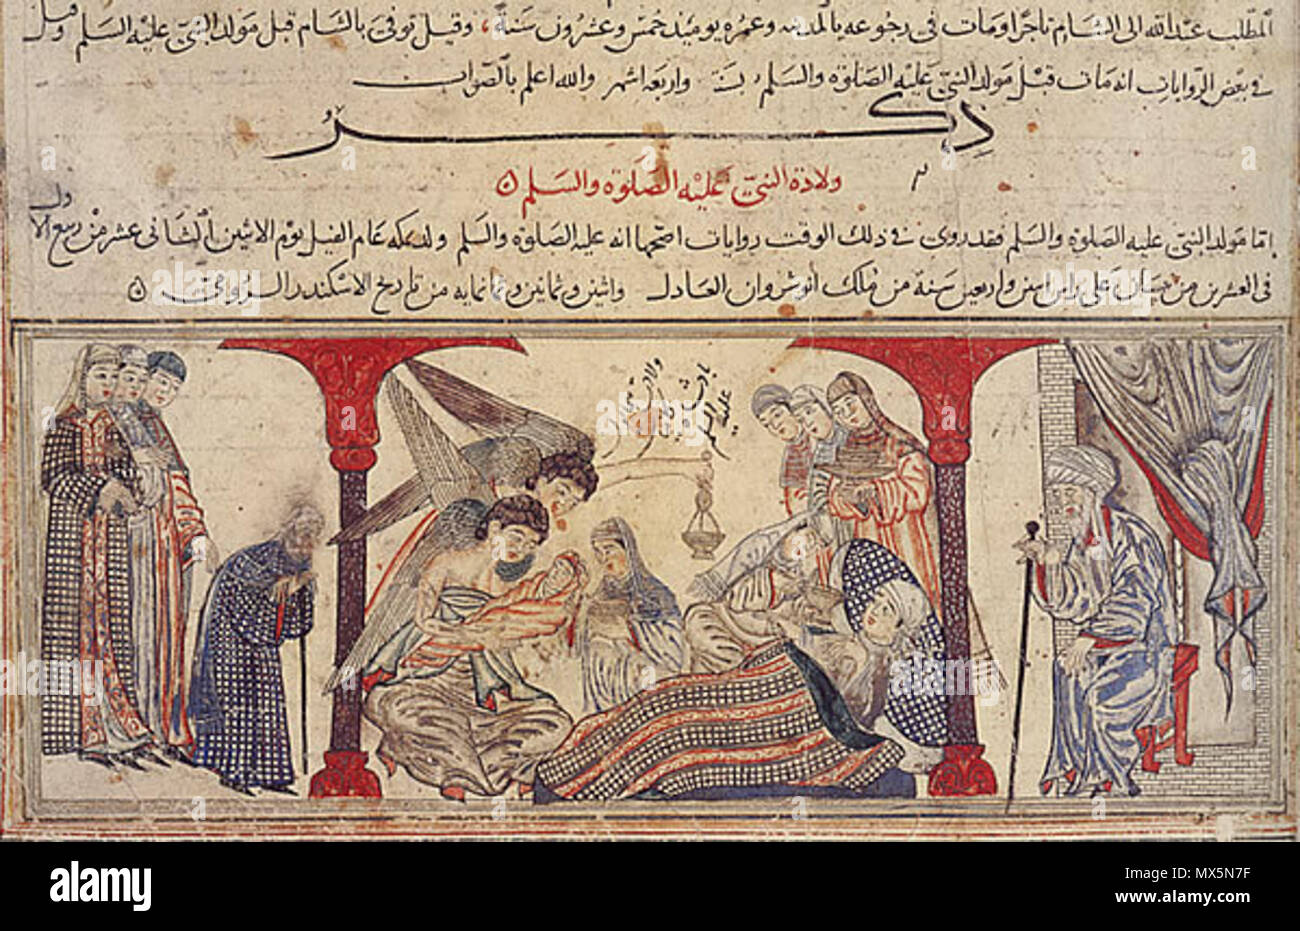 المطلب عبد الله الى الشام تاجرا ومات فى رجوعه بالمدينه وعمره يوميذ خمس وعشرون سنة وقيل توفى بالشام قبل مولد النبى عليه السلم وقيل
فى بعض الروايات انه مات قبل مولد النبى عليه الصلوة والسلم بسنة واربعة اشهر والله اعلم بالصواب
ذكر
ولادة النبى عليه الصلوة والسلم
اما مولد النبى عليه الصلوة والسلم فقد روى فى ذلك الوقت روايات اصحها انه عليه الصلوة والسلم ولد بمكه عام الفيل يوم الاثنين الثانى عشر من ربيع الاول
فى العشرين من نيسان على راس اثنين واربعين سنة من ملك انوشروان العادل واثنين وثمانين وثمانمايه من تاريخ الاسكندر الرومى
ولادت
عليه السلم
alamy
Image ID: MX5N7F
www.alamy.com